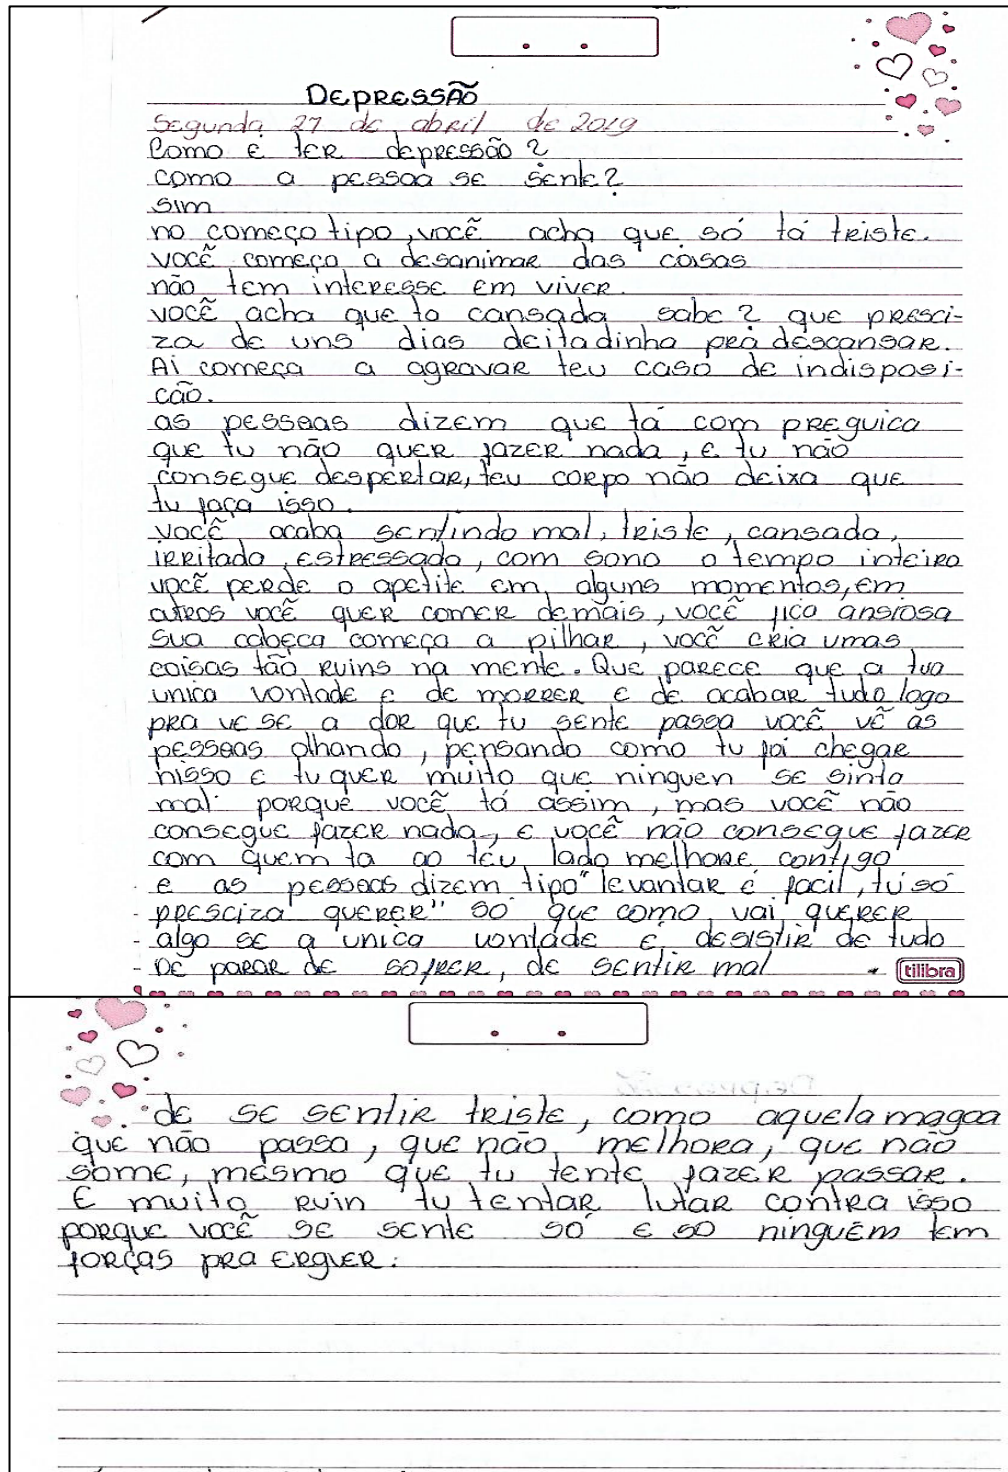 DEPRESSÃO
Segunda 27 de abril de 2019
Como é ter depressão?
como a pessoa se sente?
sim
no começo tipo, você acha que só tá triste.
você começa a desanimar das coisas
não tem interesse em viver.
você acha que to cansada sabe? que presci-
za de uns dias deitadinha pra descansar.
Ai começa a agravar teu caso de indisposi-
cão.
as pessoas dizem que tá com preguica
que tu não quer fazer nada, e tu não
consegue despertar, teu corpo não deixa que
tu faça isso.
você acaba sentindo mal, triste, cansada,
irritada, estressada, com sono o tempo inteiro
você perde o apetite em alguns momentos, em
outros você quer comer demais, você fica ansiosa
sua cabeça começa a pilhar, você cria umas
coisas tão ruins na mente. Que parece que a tua
unica vontade e de morrer e de acabar tudo logo
pra ve se a dor que tu sente passa você vê as
pessoas olhando, pensando como tu foi chegar
nisso e tu quer muito que ninguen se sinta
mal porque você tá assim, mas você não
consegue fazer nada, e você não consegue fazer
com quem ta ao teu lado melhore contigo
e as pessoas dizem tipo "levantar é facil, tu só
presciza querer" só que como vai querer
algo se a unica vontade é desistir de tudo
De parar de sofrer, de sentir mal
tilibra
de se sentir triste, como aquela magoa
que não passa, que não melhora, que não
some, mesmo que tu tente fazer passar.
E muito ruin tu tentar lutar contra isso
porque você se sente só e so ninguém tem
forças pra erguer.